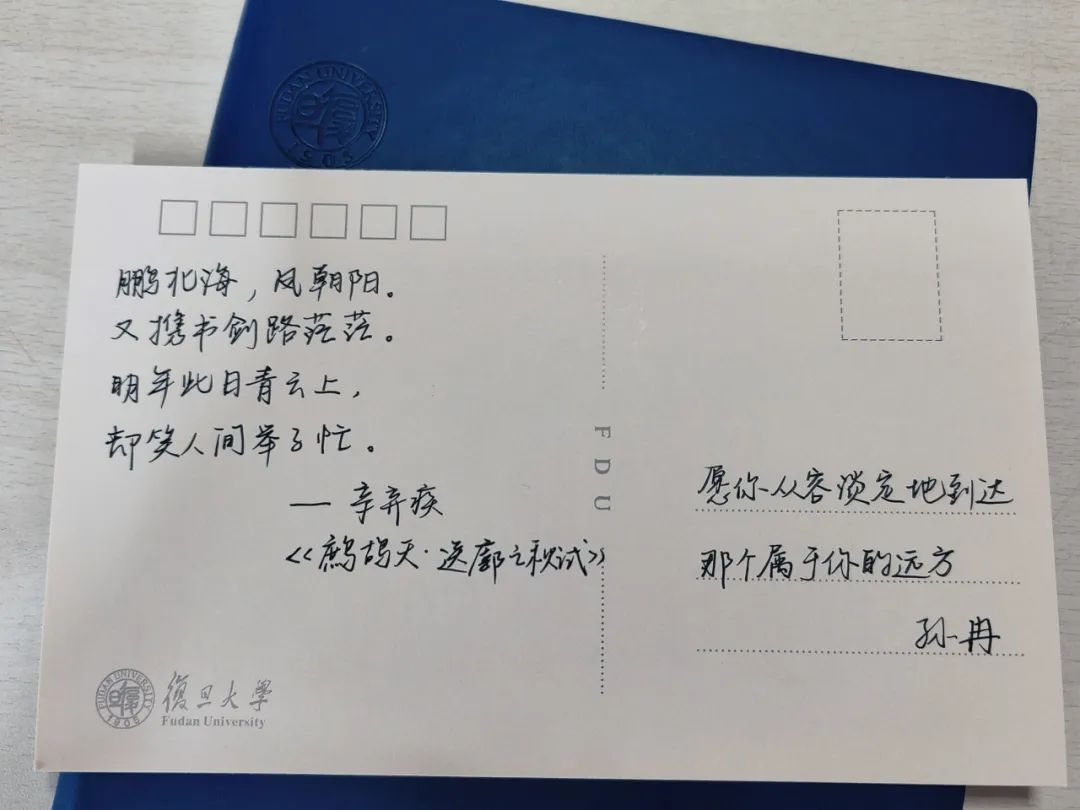 FUDAN UNIVERSITY
1905
鹏北海，凤朝阳。
又携书剑路茫茫。
明年此日青云上，
却笑人间举子忙。
— 辛弃疾
《鹧鸪天·送廓之秋试》
FDU
愿你从容淡定地到达
那个属于你的远方
孙冉
FUDAN UNIVERSITY
1905
復旦大學
Fudan University